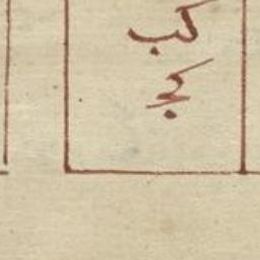 كب
كج